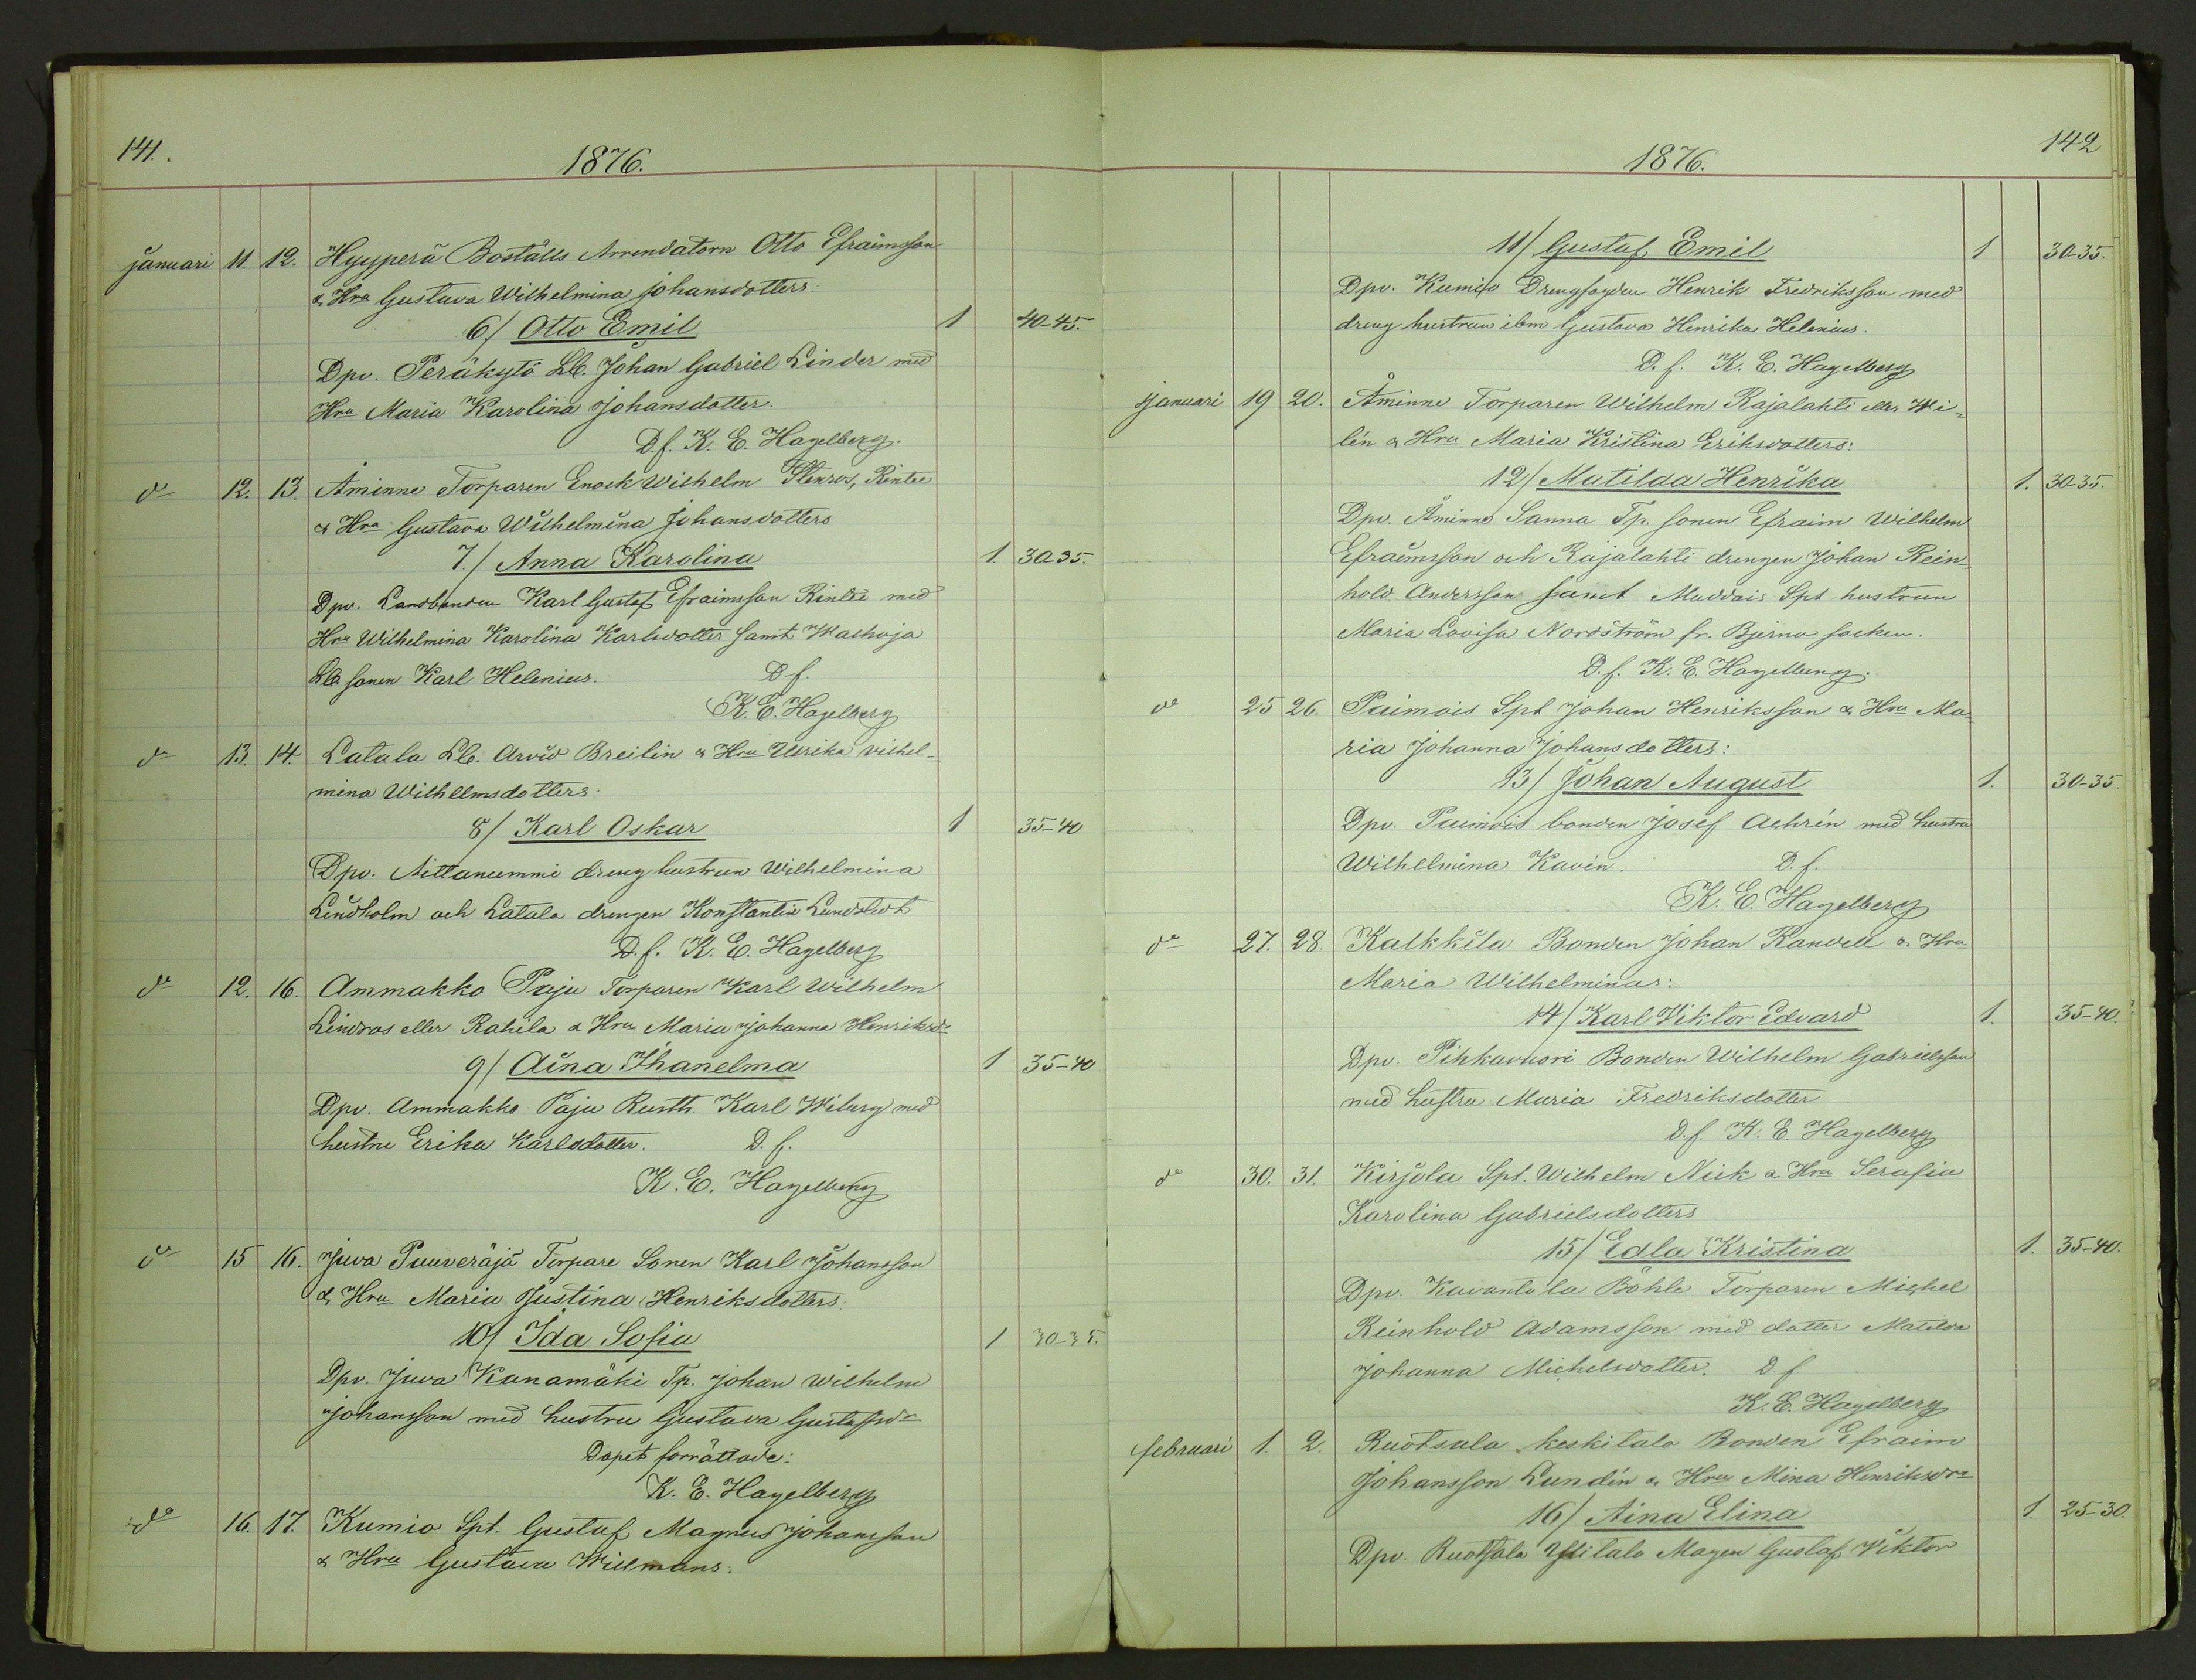 141.
1876.
januari 11. 12. Hyyperä Boställs Arrendatorn Otto Efraimsson
& Hru Gustava Wilhelmina Johansdotters:
6/ Otto Emil 1 40-45.
Dpv. Peräkylö Lb. Johan Gabriel Linder med
Hru Maria Karolina Johansdotter.
D.f. K. E. Hagelberg.
do 12. 13. Åminne Torparen Enock Wilhelm Stenros, Rintee
& Hru Gustava Wilhelmina Johansdotters
7./ Anna Karolina 1. 30-35.
Dpv. Landbonden Karl Gustaf Efraimsson Rintee med
Hru Wilhelmina Karolina Karlsdotter samt
Lb sonen Karl Helenius. D f.
K. E. Hagelberg
do 13. 14. Latala Lb. Arvid Breilin & Hru Ulrika vilhel-
mina Wilhelmsdotters:
8/ Karl Oskar 1 35-40
Dpv. Aittanummi dreng hustrun Wilhelmina
Lindholm och Latala drengen Konstantin Lundstedt
D.f. K. E. Hagelberg
do 12. 16. Ammakko Paju Torparen Karl Wilhelm
Lindros eller Rahila & Hru Maria Johanna Henriksdr
9/ Aina Ihanelma 1 35-40
Dpv. Ammakko Paju Rusth. Karl Wiberg med
hustru Erika Karlsdotter. D. f.
K. E. Hagelberg
do 15 16. Juva Puuveräjä Torpare Sonen Karl Johansson
& Hru Maria Justina Henriksdotters:
10/ Ida Sofia 1 30-35.
Dpv. Juva Kanamäki Tp. Johan Wilhelm
Johansson med hustru Gustava Gustafsdr
Dopet förrättade:
K. E. Hagelberg
do 16. 17. Kumio Spt. Gustaf Magnus Johansson
& Hru Gustava Willmans:
1876. 142
11/ Gustaf Emil 1 30-35.
Dpv. Kumio Drengfogden Henrik Fredriksson med
dreng hustrun ibm Gustava Henrika Helenius.
D. f. K. E. Hagelberg
januari 19 20. Åminne Torparen Wilhelm Rajalahti eller Wi-
lén & Hru Maria Kristina Eriksdotters:
12/ Matilda Henrika 1. 30-35.
Dpv. Åminne Sanna Tp. sonen Efraim Wilhelm
Efraimsson och Rajalahti drengen Johan Rein-
hold Andersson samt Muddais Spt hustrun
Maria Lovisa Nordström fr. Bjerno socken.
D. f. K. E. Hagelberg.
do 25 26. Paimois Spt Johan Henriksson & Hru Ma-
ria Johanna Johansdotters:
13/ Johan August 1. 30-35
Dpv. Paimois bonden Josef Achrén med hustru
Wilhelmina Kavén. D. f.
K. E. Hagelberg
do 27. 28. Kalkkila Bonden Johan Randell & Hru
Maria Wilhelminas:
14/ Karl Viktor Edvard 1. 35-40.
Dpv. Pihkavuori Bonden Wilhelm Gabrielsson
med hustru Maria Fredriksdotter
D.f. K. E. Hagelberg
do 30. 31. Kirjola Spt. Wilhelm Nick & Hru Serafia
Karolina Gabrielsdotters
15/ Edla Kristina 1. 35-40.
Dpv. Kavantola Böhle Torparen Michel
Reinhold Adamsson med dotter Matilda
Johanna Michelsdotter. D f
K. E. Hagelberg
februari 1. 2. Ruotsala keskitalo Bonden Efraim
Johansson Lundén & Hru Mina Henriksdr
16/ Aina Elina 1. 25-30.
Dpv. Ruotsala Ylitalo Magen Gustaf Viktor